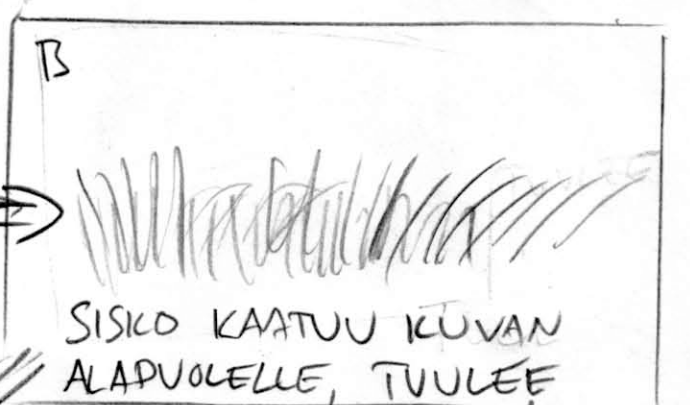 B
SISKO KAATUU KUVAN
ALAPUOLELLE, TUULEE